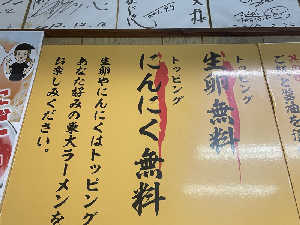 トッピング
生卵無料
トッピング
にんにく無料
生卵やにんにくはトッピング
あなた好みの東大ラーメンを
お楽しみください。